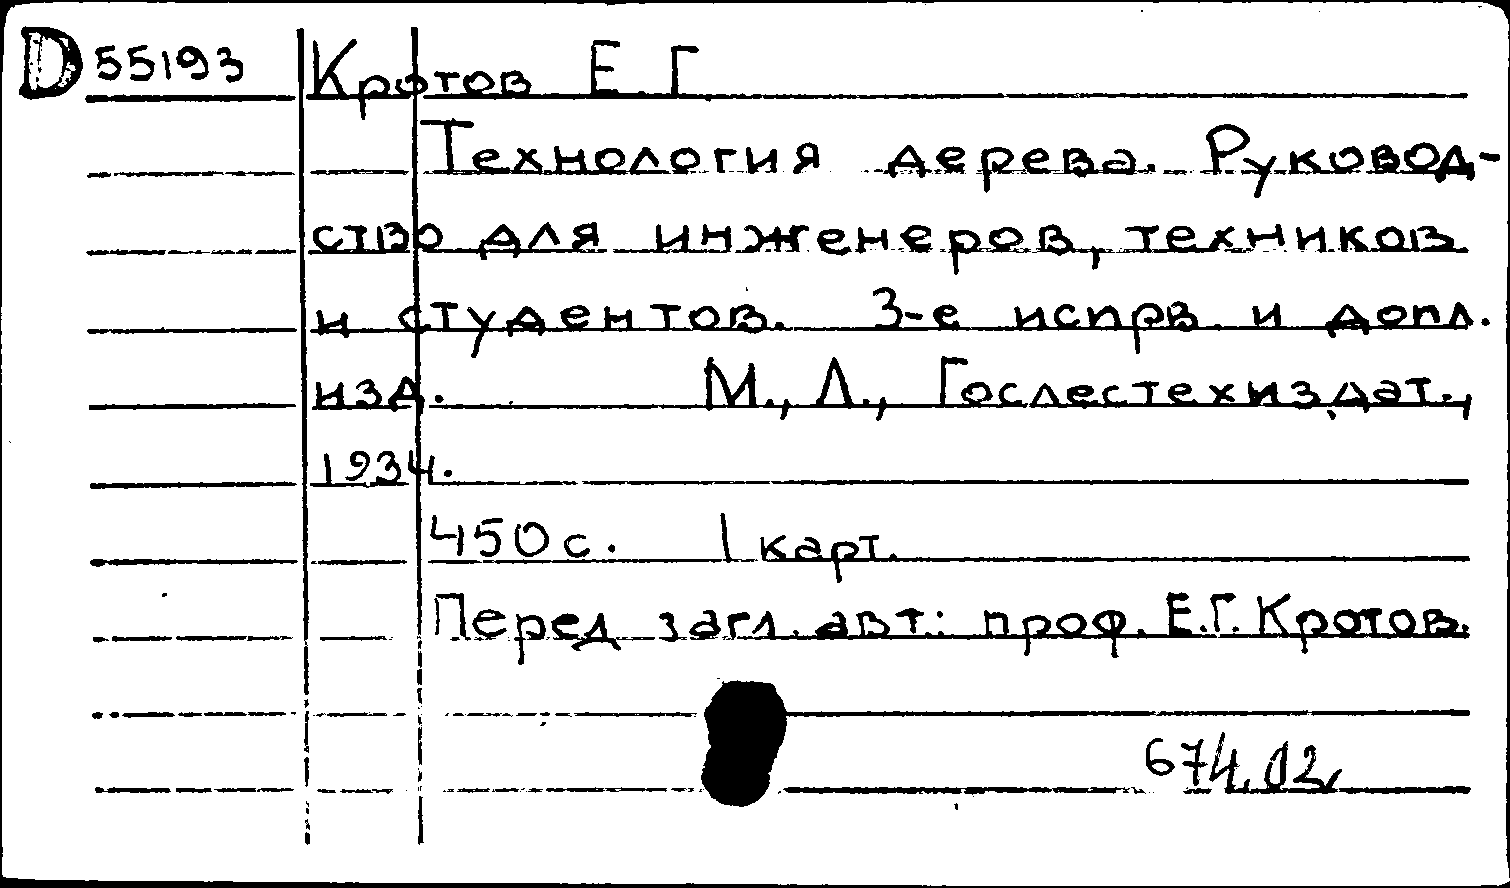 D 55193 Кротов Е. Г
Технология дерева. Руковод-
ство для инженеров, техников
и студентов. 3-е испрв. и допл.
изд. М., Л., Гослестехиздат.,
1934.
450 с. 1 карт.
Перед загл. авт.: проф. Е.Г. Кротов.
674.02